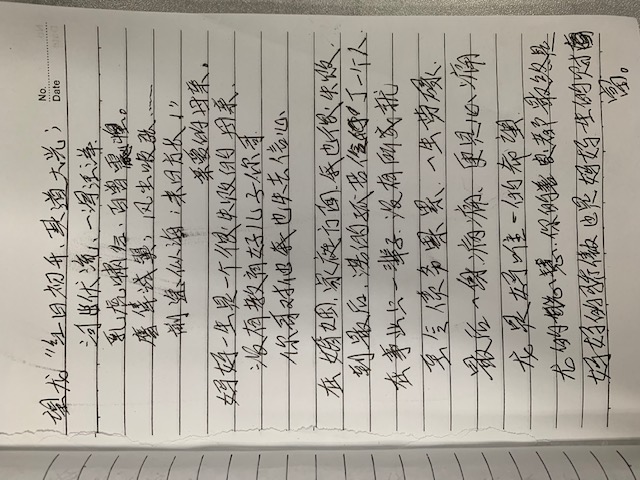 No.
Date
望龙“红日初升，其道大光；
河出伏流，一泻汪洋
乳虎啸谷，百兽震惶。
鹰隼试翼；风尘吸张……
前途似海；来日方长！”
亲爱的母亲。
妈妈一生是一个很失败的母亲
没有教育好儿子你哥
你哥对他我也失去信心
在婚姻，家庭方面，我也很失败
到最后，落的孤苦伶仃了一个人
在事业只一辈子，没有所成就
至今债务累累，一生劳碌
最后一身病痛，更是心痛
龙是妈唯一的希望
龙的聪慧，你的善良都最终是
妈妈的骄傲也是妈妈一生的财富
富。